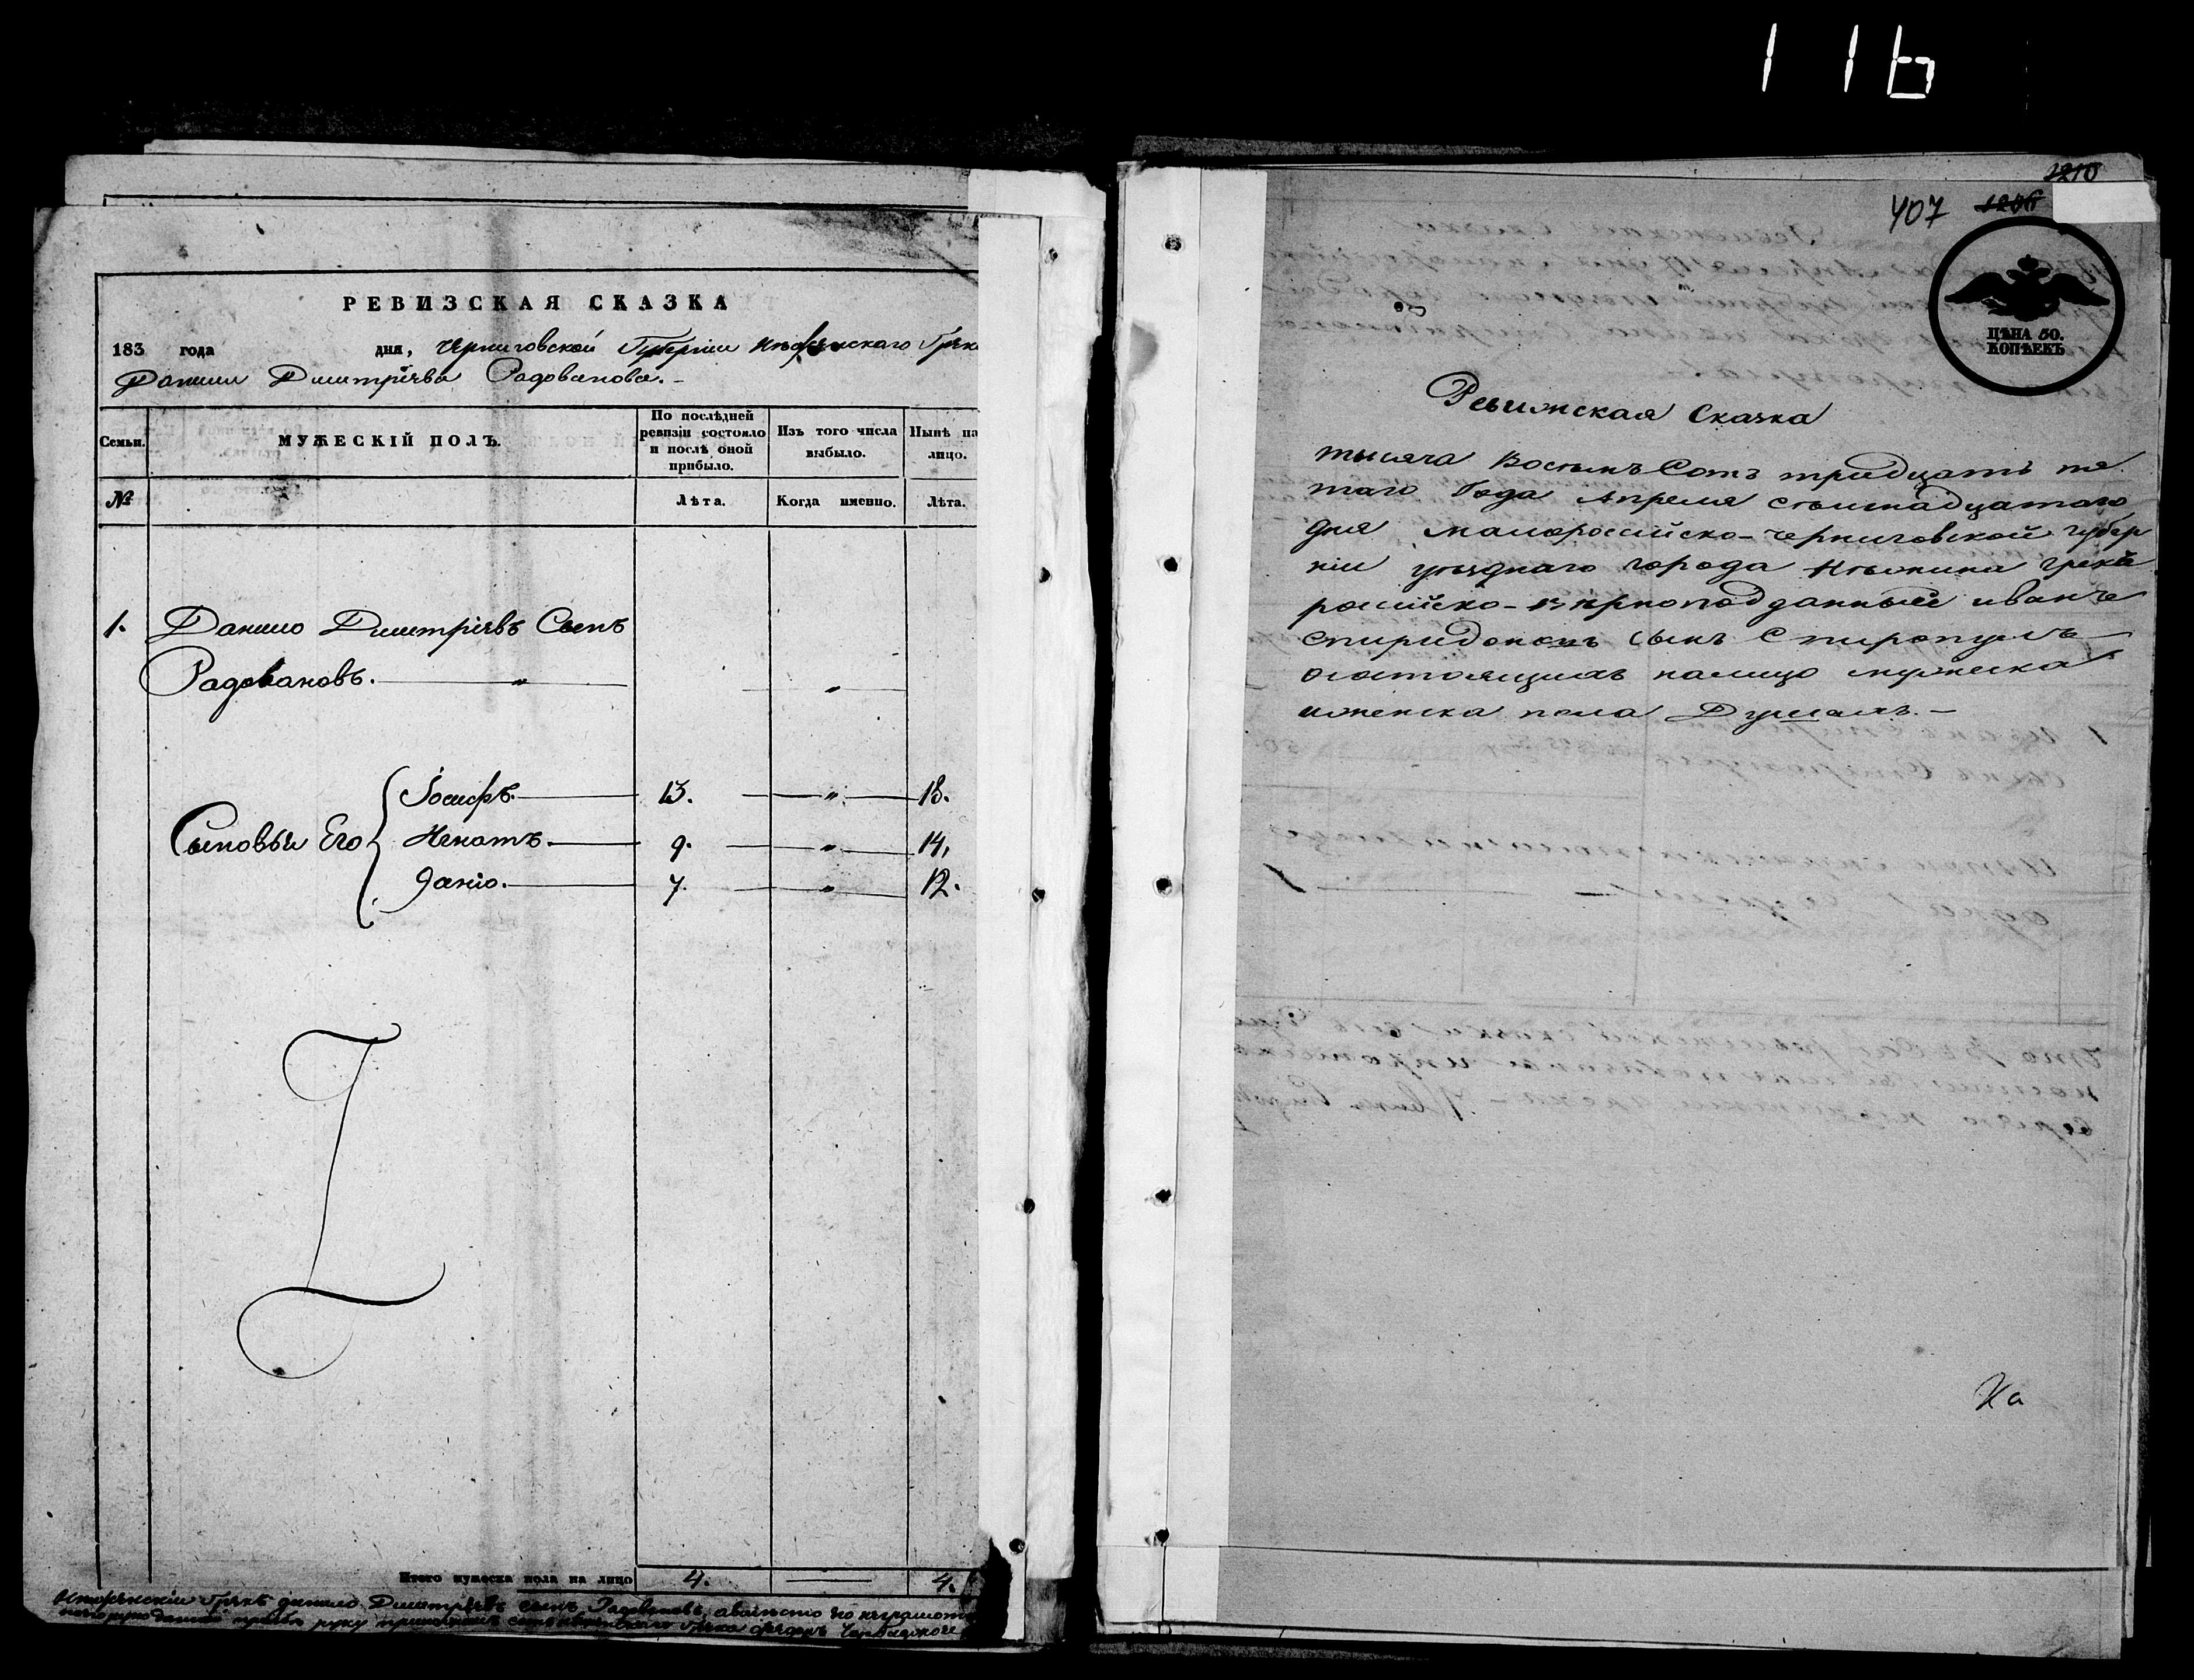 116
РЕВИЗСКАЯ СКАЗКА
183 года дня, Черниговской Губернiи Нѣженскаго Грек
Данилы Дмитрiева Радованова.-
Семьи.
МУЖЕСКIЙ ПОЛЪ.
По послѣдней ревизiи состояло и послѣ оной прибыло.
Изъ того числа выбыло.
Нынѣ на лицо.
№
Лѣта.
Когда именно.
Лѣта.
1. Данило Дмитрiевъ Сынъ
Радовановъ. „ „
Iосифъ. 13. „ 18.
Сыновья Его Игнатъ. 9. „ 14.
7. „ 12.
Итого мужеска пола на лицо 4. 4.
Нѣженскiй Грекъ Данило Дмитрiевъ сынъ Радовановъ, авмѣсто его неграмотн
руку приложилъ Грекъ
1210
407
ЦѢНА 50.
КОПѢЕКЪ
Ревижская Сказка
тысяча Восемъ Сотъ тридцать пя
таго Года Апреля семнадцатаго
дня малороссiйско-черниговской губер
нiи уѣзднаго города Нѣжина грекъ
россiйско- вернопод данный иванъ
спиридоновъ сынъ Стиропулъ
осостоящихъ налицо мужеска
иженска пола Душахъ.-
Ка